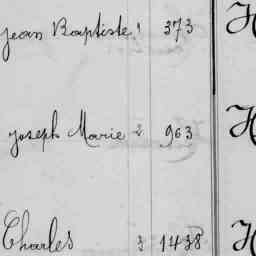 Jean Baptiste 1 373 H
Joseph Marie 2 963 H
Charles 3 1438 H